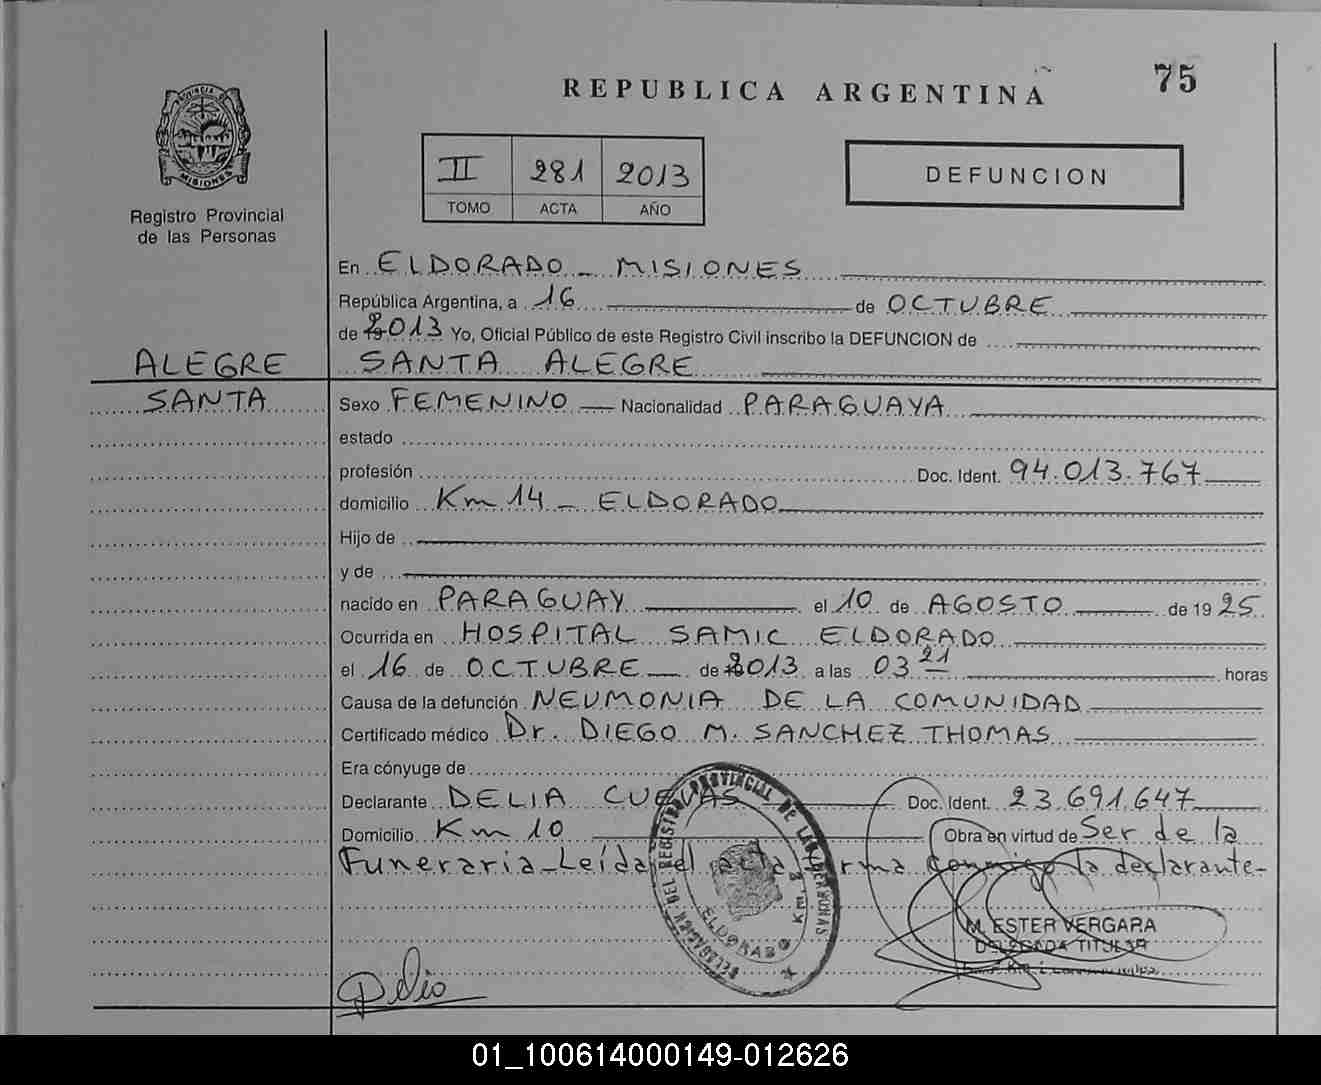 75
REPUBLICA ARGENTINA
PROVINCIA DE
MISIONES
Registro Provincial
de las Personas
II 281 2013
TOMO ACTA AÑO
DEFUNCION
En ELDORADO - MISIONES
República Argentina, a 16 de OCTUBRE
de 2013 Yo, Oficial Público de este Registro Civil inscribo la DEFUNCION de
ALEGRE SANTA ALEGRE
SANTA Sexo FEMENINO Nacionalidad PARAGUAYA
estado
profesión Doc. Ident. 94.013.767
domicilio Km 14 - ELDORADO
Hijo de
y de
nacido en PARAGUAY el 10 de AGOSTO de 1925
Ocurrida en HOSPITAL SAMIC ELDORADO
el 16 de OCTUBRE de 2013 a las 03 21 horas
Causa de la defunción NEUMONIA DE LA COMUNIDAD
Certificado médico Dr. DIEGO M. SANCHEZ THOMAS
Era cónyuge de
Declarante DELIA CUEVAS Doc. Ident. 23.691.647
Domicilio Km 10 Obra en virtud de Ser de la
Funeraria - Leída el acta firma conmigo la declarante-
DEL REGISTRO PROVINCIAL DE LAS PERSONAS
ELDORADO Km
M. ESTER VERGARA
DELEGADA TITULAR
Delia
01_100614000149-012626